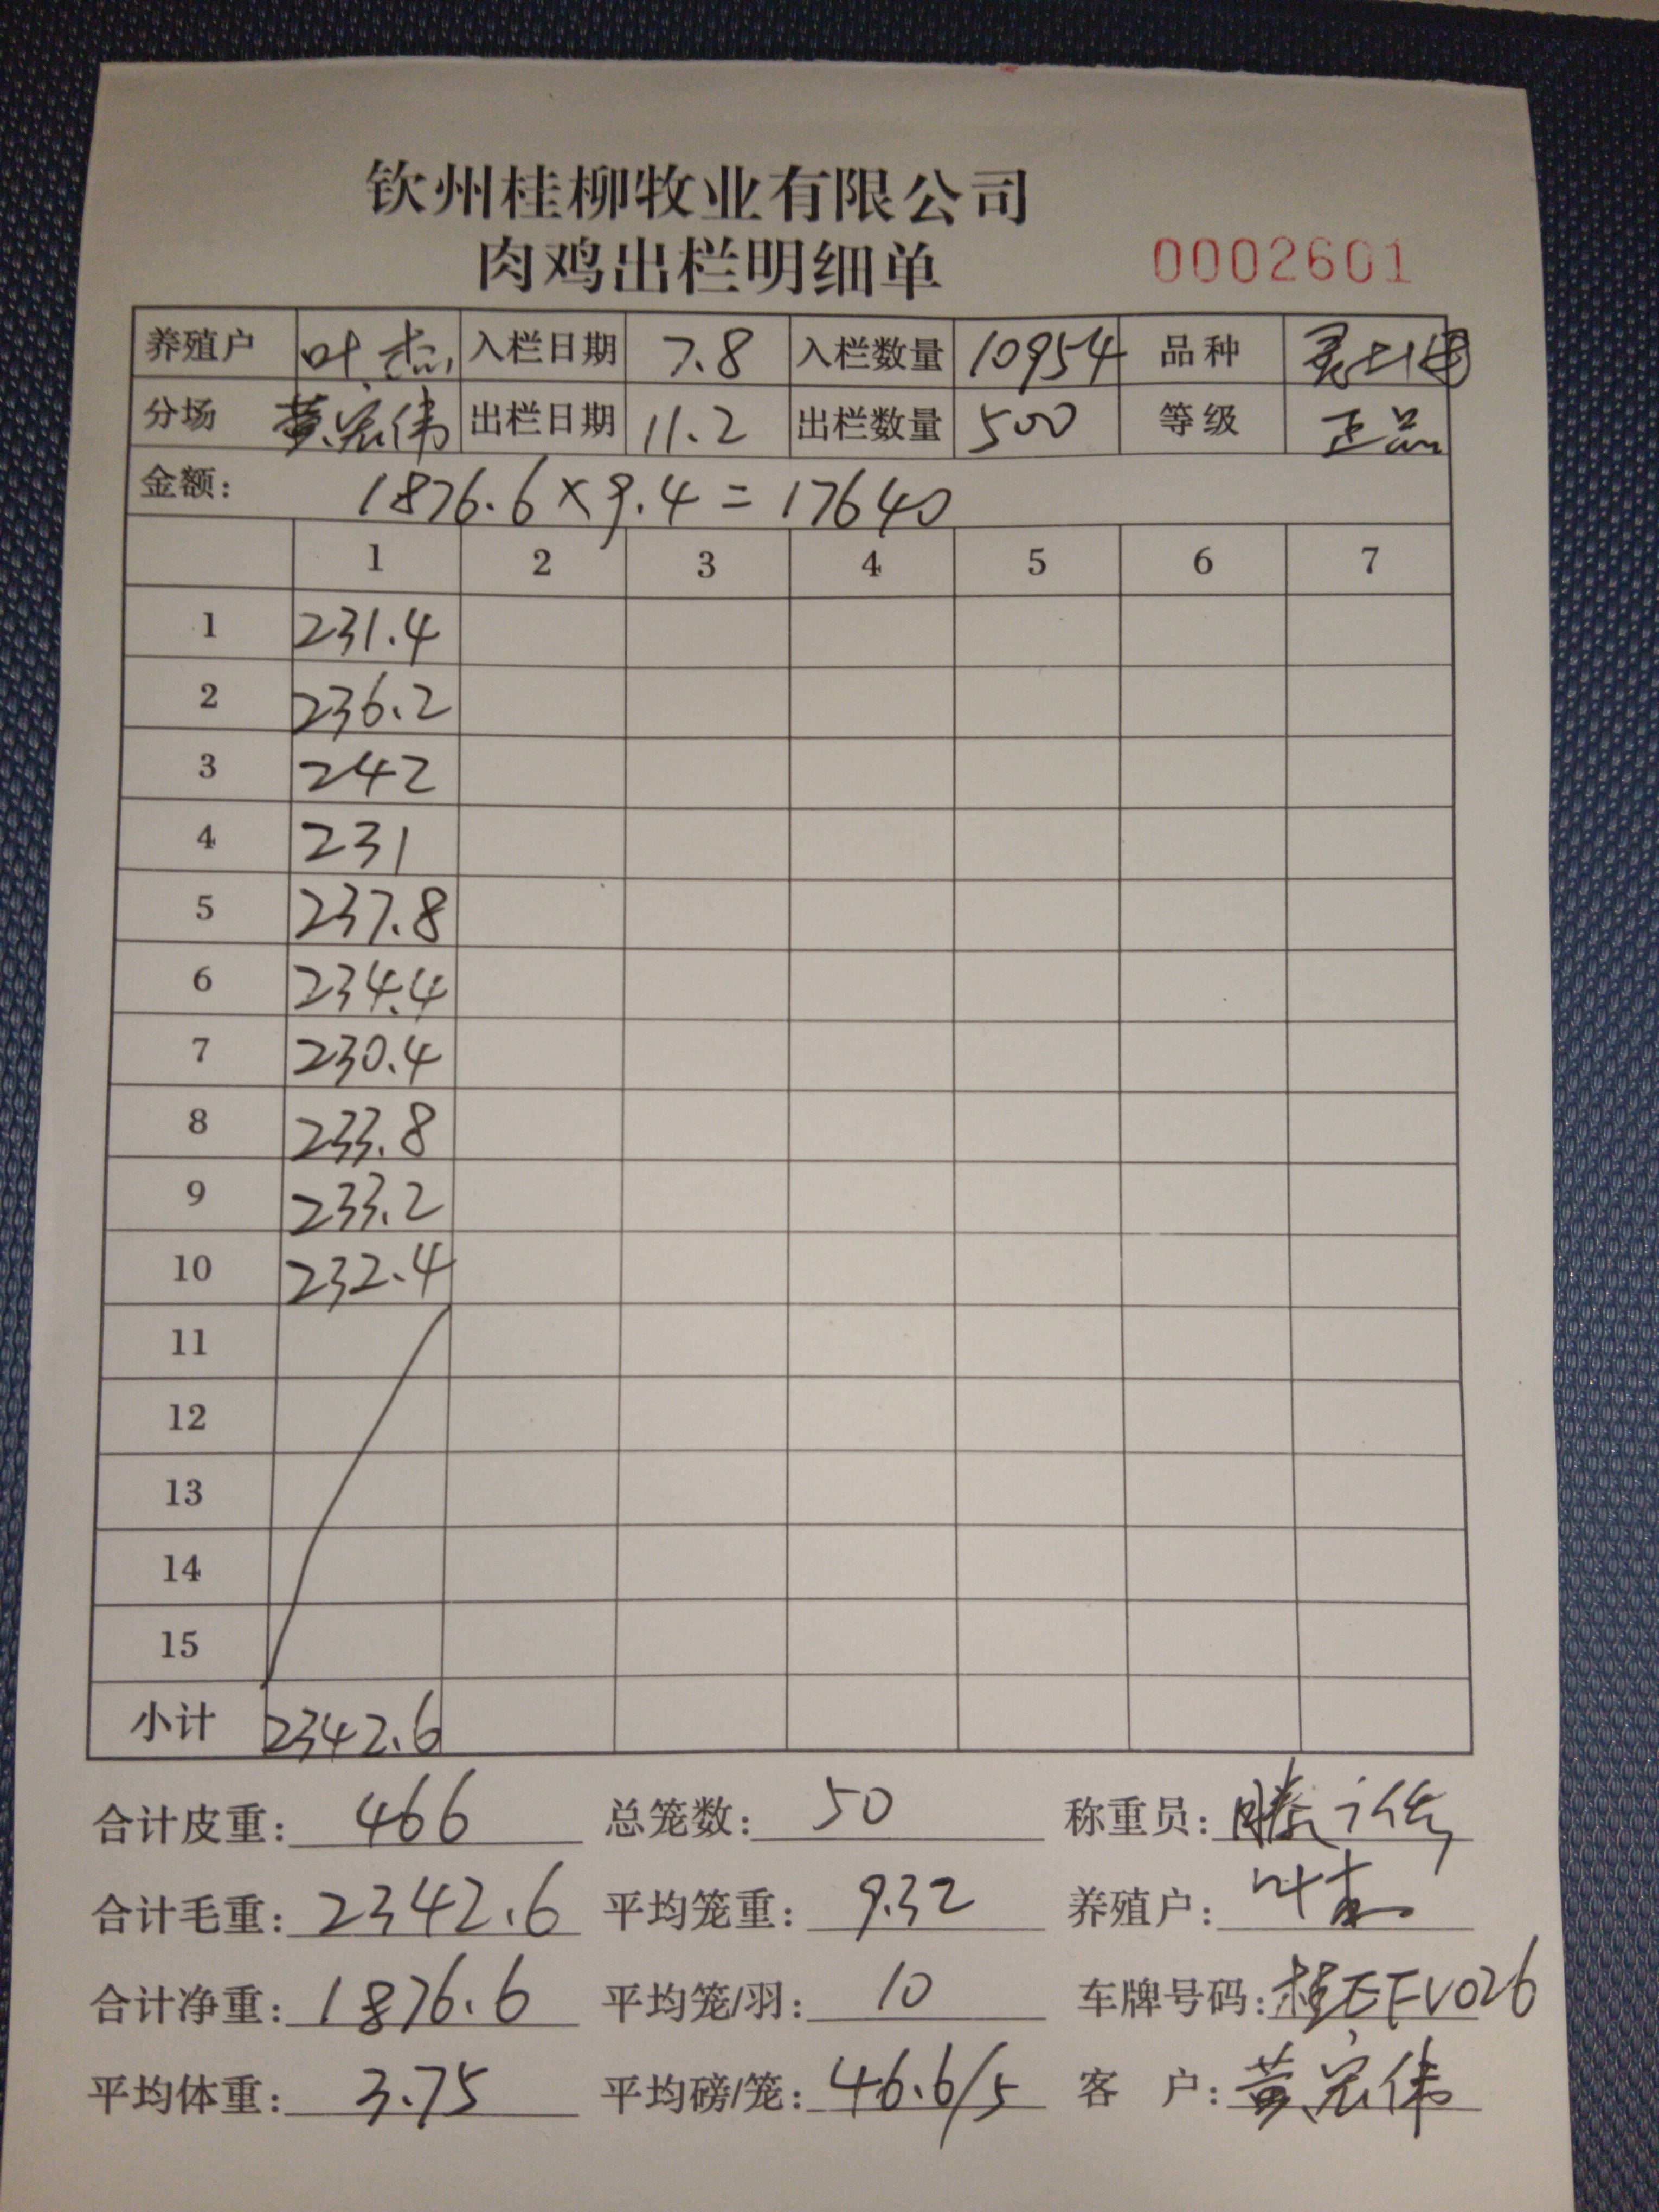 钦州桂柳牧业有限公司
肉鸡出栏明细单 0002601
养殖户 叶杰 入栏日期 7.8 入栏数量 10954 品种
分场 黄宏伟 出栏日期 11.2 出栏数量 500 等级 正品
金额: 1876.6×9.4=17640
1 2 3 4 5 6 7
1 231.4
2 236.2
3 242
4 231
5 237.8
6 234.4
7 230.4
8 233.8
9 233.2
10 232.4
11
12
13
14
15
小计 2342.6
合计皮重: 466 总笼数: 50 称重员:
合计毛重: 2342.6 平均笼重: 9.32 养殖户: 叶杰
合计净重: 1876.6 平均笼/羽: 10 车牌号码:
平均体重: 3.75 平均磅/笼: 46.6/5 客 户: 黄宏伟